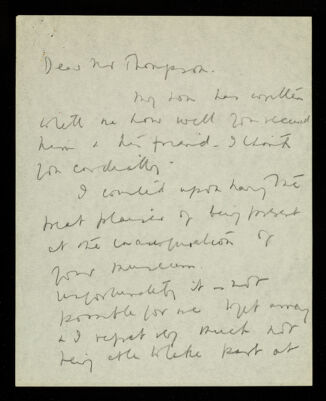 Dear Mr Thompson.
My son has written
to tell me how well you received
him & his friend - I thank
you cordially.
I counted upon having the
great pleasure of being present
at the inauguration of
your museum
unfortunately it is not
possible for me to get away
& I regret very much not
being able to take part at